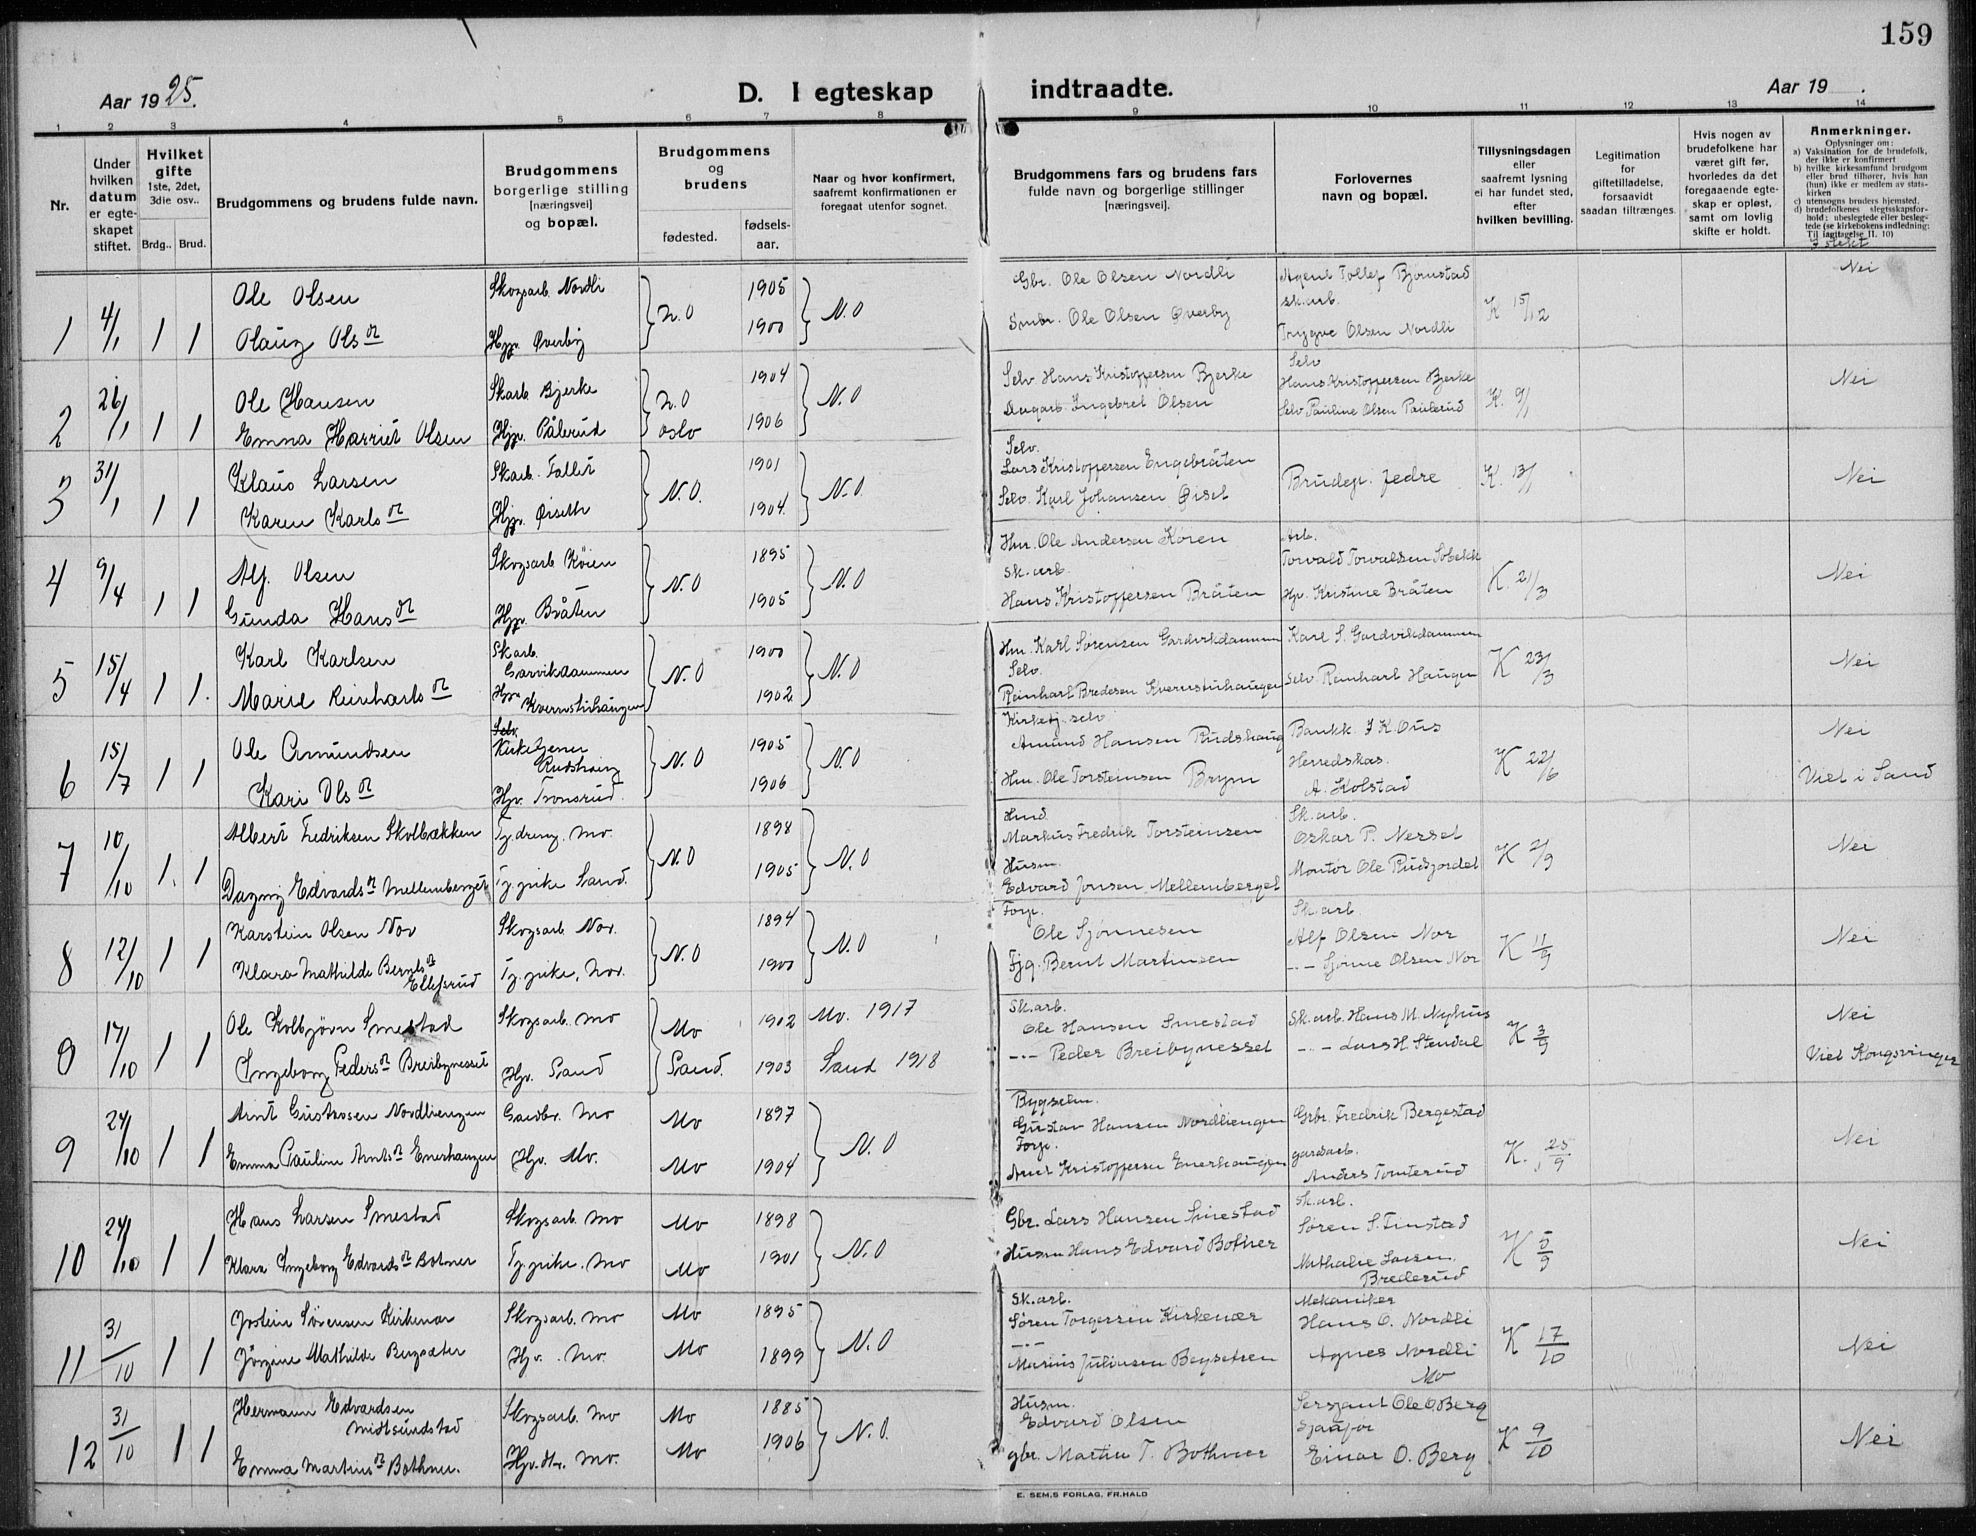 159
Aar 1925.
D. I egteskap indtraadte.
Aar 19 .
1 2 3 4 5 6 7 8 9 10 11 12 13 14
Nr.
Under hvilken datum er egteskapet stiftet.
Hvilket gifte 1ste, 2det, 3die osv..
Brdg.. Brud.
Brudgommens og brudens fulde navn.
Brudgommens borgerlige stilling [næringsvei] og bopæl.
Brudgommens og brudens
fødested.
fødsels-aar.
Naar og hvor konfirmert, saafremt konfirmationen er foregaat utenfor sognet.
Brudgommens fars og brudens fars fulde navn og borgerlige stillinger [næringsvei].
Forlovernes navn og bopæl.
Tillysningsdagen eller saafremt lysning ei har fundet sted, efter hvilken bevilling.
Legitimation for giftetilladelse, forsaavidt saadan tiltrænges.
Hvis nogen av brudefolkene har været gift før, hvorledes da det foregaaende egteskap er opløst, samt om lovlig skifte er holdt.
Anmerkninger.
Oplysninger om:
a) Vaksination for de brudefolk, der ikke er konfirmert
b) hvilke kirkesamfund brudgom eller brud tilhører, hvis han (hun) ikke er medlem av statskirken
c) utensogns bruders hjemsted.
d) brudefolkenes slegtsskapsforhold: ubeslegtede eller beslegtede (se kirkebokens indledning: Til iagttagelse II. 10)
1 4/1 1 1
Ole Olsen
Skogsarb. Nordli
N.O
1905
N.O
Gbr. Ole Olsen Nordli
Agent Tollef Bjørnstad
K 15/12
Nei
Olaug Olsdt
Hjp. Øverby
1900
Smbr. Ole Olsen Øverby
sk.arb.
Trygve Olsen Nordli
2 26/1 1 1
Ole Hansen
Skarb. Bjerke
N.O
1904
N.O
Selv Hans Kristoffersen Bjerke
Selv
Hans Kristoffersen Bjerke
K. 9/1
Nei
Emma Harriet Olsen
Hjp. Pålerud
Oslo
1906
Ingebret Olsen
Selv Pauline Olsen Paulerud
3 31/1 1 1
Klaus Larsen
Skarb.
N.O.
1901
N.O
Selv.
Lars Kristoffersen Engebråten
Brudep. fedre
K. 13/1
Nei
Karen Karlsdt
Hjp. Øiseth
1904
Selv. Karl Johansen Øiset
4 9/4 1 1
Alf. Olsen
Skogsarb Köien
N.O
1895
N.O
Hm. Ole Andersen Køien
Arb.
Torvald Torvaldsen
K. 21/3
Nei
Gunda Hansdt
Hjp. Bråten
1905
sk. arb.
Hans Kristoffersen Bråten
Hp. Kristine Bråten
5 15/4 1 1.
Karl Karlsen
Skarb.
Garvikdammen
N.O
1900
N.O
Hm. Karl Sørensen Gardvikdammen
Karl S. Gardvikdammen
K 23/3
Nei
Marie Reinhartsdt
Hjp. Kvernstuhaugen
1902
Selv.
Reinhart Bredesen Kvernstuhaugen
Selv. Reinhart Haugen
6 15/7 1 1
Ole Amundsen
Kirketjener
Rudshaug
N.O
1905
N.O
Kirketj. selv
Amund Hansen Rudshaug
Bankk. J K Ous
K 22/6
Nei
Kari Olsdt
Hjv. Tronsrud.
1906
Hm. Ole Torsteinsen Brym
Herredskas.
A. Kolstad
Viet i Sand
7 10/10 1. 1
Albert Fredriksen Skolbækken
Tj.dreng. Mo.
N.O
1898
N.O
Hmd.
Markus Fredrik Torsteinsen
Sk.arb.
Oskar P. Nesset
K 2/9
Nei
Dagny Edvardsdt Mellemberget
Tj.pike Sand.
1905
Husm.
Edvard Jonsen Mellemberget
Montør Ole Rudsjordet
8 12/10 1 1
Karstein Olsen Nor
Skogsarb Nor.
N.O
1894
N.O
Forp.
Ole Sjønnesen
Sk.arb.
Alf Olsen Nor
K 11/9
Nei
Klara Mathilde Berntsdt Ellefsrud
Tj.pike, Nor.
1900
Fjg. Bernt Martinsen
-"- Sjønne Olsen Nor
8 17/10 1 1
Ole Kolbjørn Smestad
Skogsarb. Mo
Mo
1902
Mo. 1917
Sk.arb.
Ole Hansen Smestad
Sk.arb. Hans M. Nyhus
K 3/9
Nei
Ingeborg Pedersdt Breibynesset
Hjv. Sand
Sand.
1903
Sand 1918
-"- Peder Breibynesset
-"- Lars H. Stendal
Viet Kongsvinger
9 24/10 1 1
Arnt Gustavsen Nordliengen
Gardbr. Mo
Mo
1897
N.O
Bygselm.
Gustav Hansen Nordliengen
Grbr. Fredrik Bergestad
K. 25/9
Nei
Emma Pauline Arntsdt Enerhaugen
Hjv. Mo.
Mo
1904
Forp.
Arnt Kristoffersen Enerhaugen
gardsarb.
Anders Tomterud
10 24/10 1 1
Hans Larsen Smestad
Skogsarb. Mo
Mo
1898
N.O
Gbr. Lars Hansen Smestad
sk.arb.
Søren S. Finstad
K 5/9
Nei
Klara Ingeborg Edvardsdt Botner
Tj.pike. Mo
Mo
1901
Husm Hans Edvard Bothner
Mathalie Larsen
Brederud
11 31/10 1 1
Jostein Sørensen Kirkenær
Skogsarb. Mo
Mo
1895
N.O
Sk.arb.
Søren Torgersen Kirkenær
Mekaniker
Hans O. Nordli
K 17/10
Nei
Jörgine Mathilde Bergsæter
Hjv. Mo.
Mo
1899
-"-
Marius Juliussen Bergseteren
Agnes Nordli
Mo
12 31/10 1 1
Hermann Edvardsen Midtsundstad
Skogsarb. Mo
Mo
1885
N.O.
Husm.
Edvard Olsen
Sersjant Ole O. Berg
K 9/10
Nei
Emma Martinsdt Bothner.
Hjv.H. Mo.
Mo
1906
gbr. Martin T. Bothner
Sjaafør
Einar O. Berg
E. SEM.S FORLAG, FR.HALD